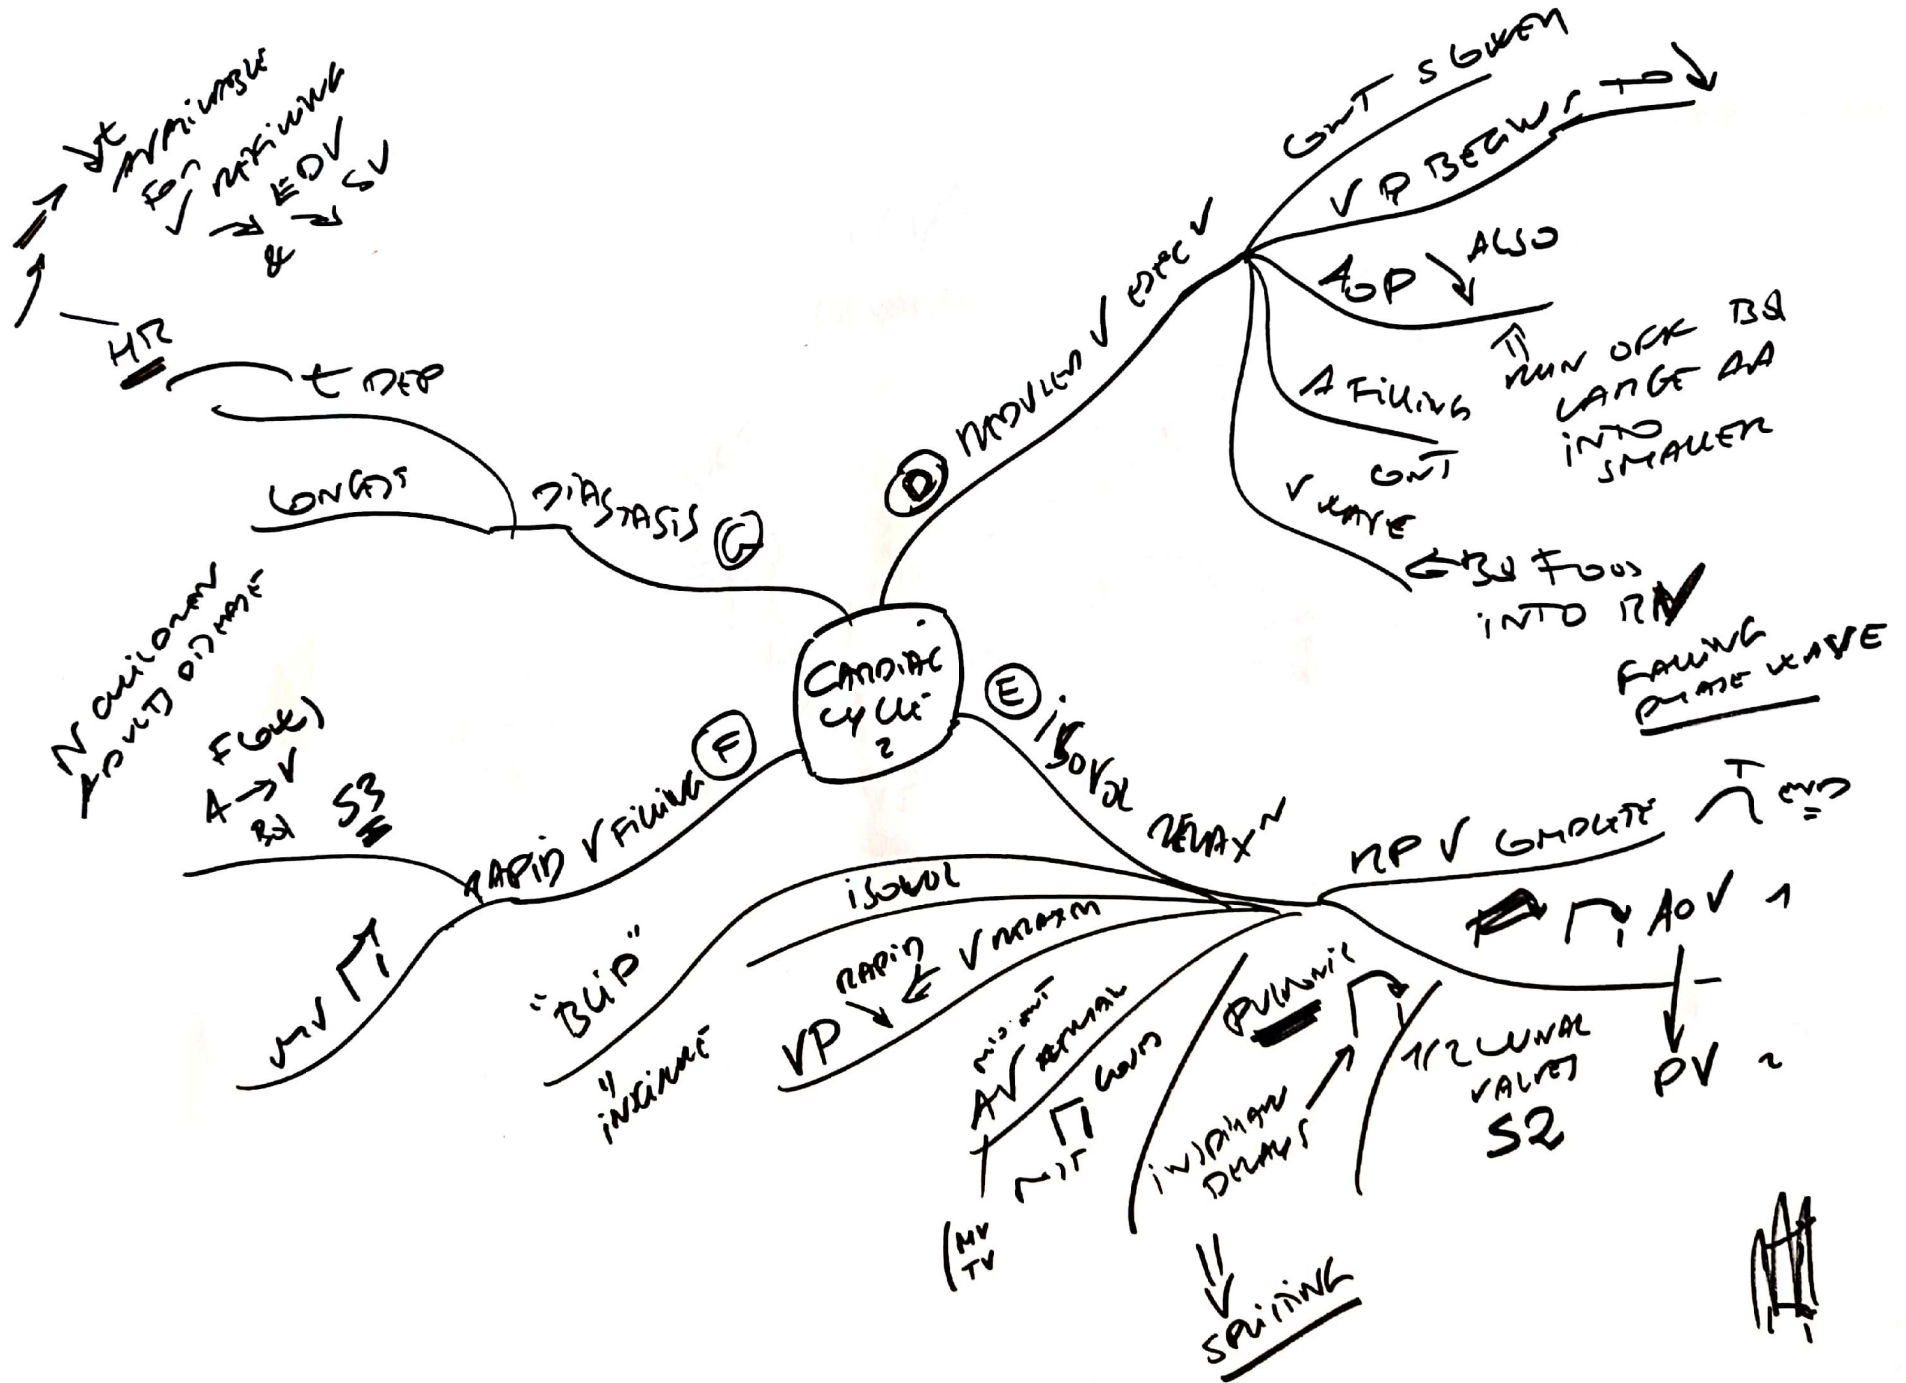 CARDIAC
CYCLE
2
D
REDUCED V EJEC
CONT S GIVEN
V P BEGINS TO
AOP ALSO
RUN OFF
LARGE
INTO
SMALLER
A FILLING
CONT
V WAVE
INTO
FALLING
PHASE WAVE
E
ISOVOL
RELAX N
RP V COMPLETE
T
END
AOV 1
PV 2
1/2 LUNAR
VALVES
S2
PULMONIC
INSPIRATION
DELAYS
SPLITTING
AV
NOT
MV
TV
RAPID
V RELAXN
VP
ISOVOL
"BLIP"
F
RAPID V FILLING
FLOW
A → V
S3
MV
N CHILDREN
ADULTS DISEASE
G
DIASTASIS
LONGEST
t DEP
HR
t
AVAILABLE
FOR
V
EDV
&
SV